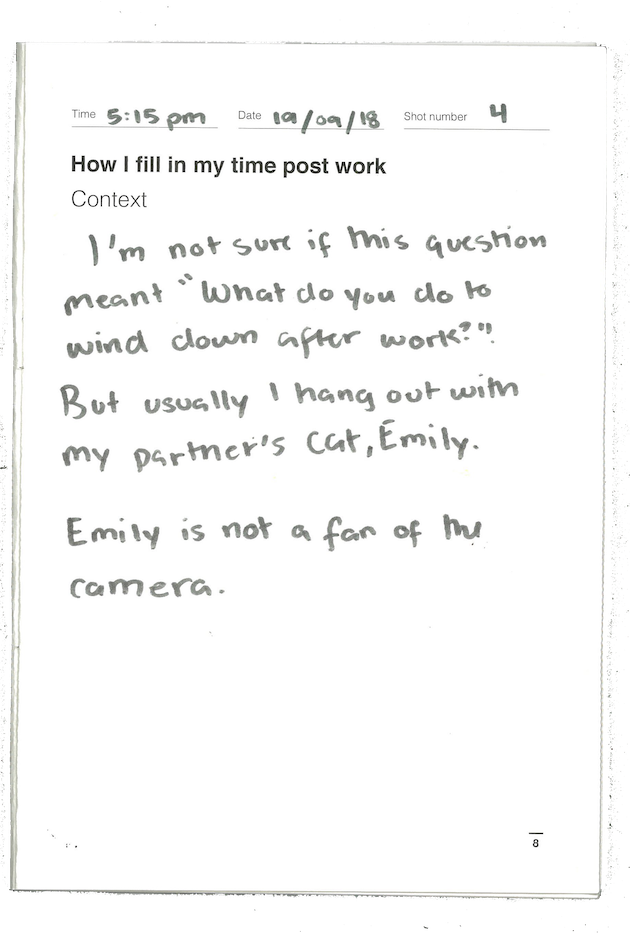 Time 5:15 pm Date 19/09/18 Shot number 4
How I fill in my time post work
Context
I'm not sure if this question
meant "What do you do to
wind down after work?"!
But usually I hang out with
my partner's cat, Emily.
Emily is not a fan of the
camera.
8